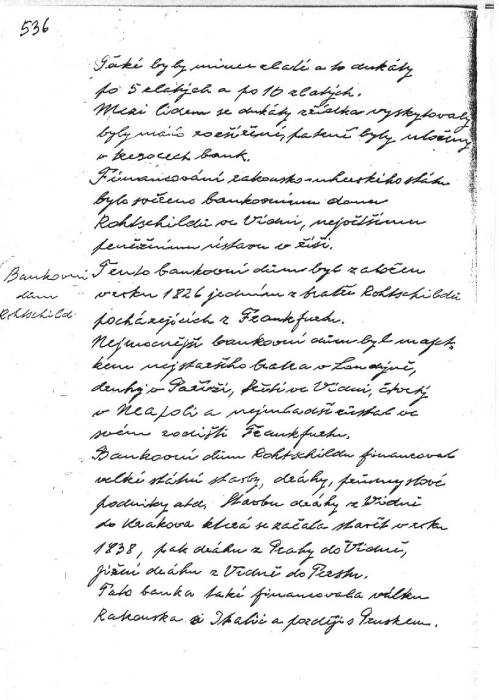 536
Také byly mince zlaté a to dukáty
po 5 zlatých a po 10 zlatých.
Mezi lidem se dukáty zřídka vyskytovaly
byly málo rozšířené, patrně byly uloženy
v trezorech bank.
Financování rakousko-uherského státu
bylo svěřeno bankovnímu domu
Rohtschildů ve Vídni, největšímu
peněžnímu ústavu v říši.
Bankovní
dům
Rohtschild
Tento bankovní dům byl založen
v roku 1826 jedním z bratří Rohtschildů
pocházejících z Frankfurtu.
Nejmocnější bankovní dům byl majet-
kem nejstaršího bratra v Londýně,
druhý v Paříži, třetí ve Vídni, čtvrtý
v Neapoli a nejmladší zůstal ve
svém rodišti Frankfurtu.
Bankovní dům Rohtschildu financoval
velké státní stavby, dráhy, průmyslové
podniky atd. Stavbu dráhy z Vídně
do Krakova která se začala stavět v roku
1838, pak dráhu z Prahy do Vídně,
jižní dráhu z Vídně do Terstu.
Tato banka také financovala válku
Rakouska s Italií a později s Pruskem.